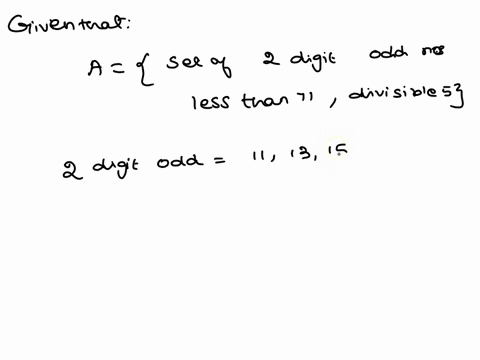 Given that:
A = { set of 2 digit odd nos
less than 71, divisible 5}
2 digit odd = 11, 13, 15